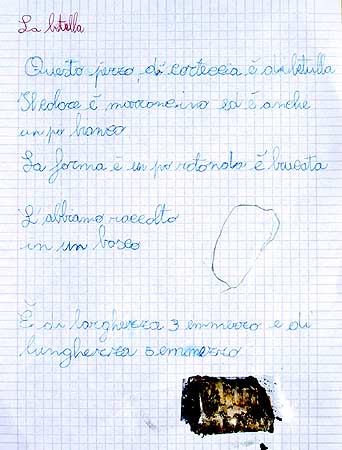 La betulla
Questo pezzo, di corteccia è di betulla
Il colore è marroncino ed è anche
un po bianco
La forma è un po rotonda è bucata
L'abbiamo raccolto
in un bosco
È di larghezza 3 e mezzo e di
lunghezza 5 e mezzo